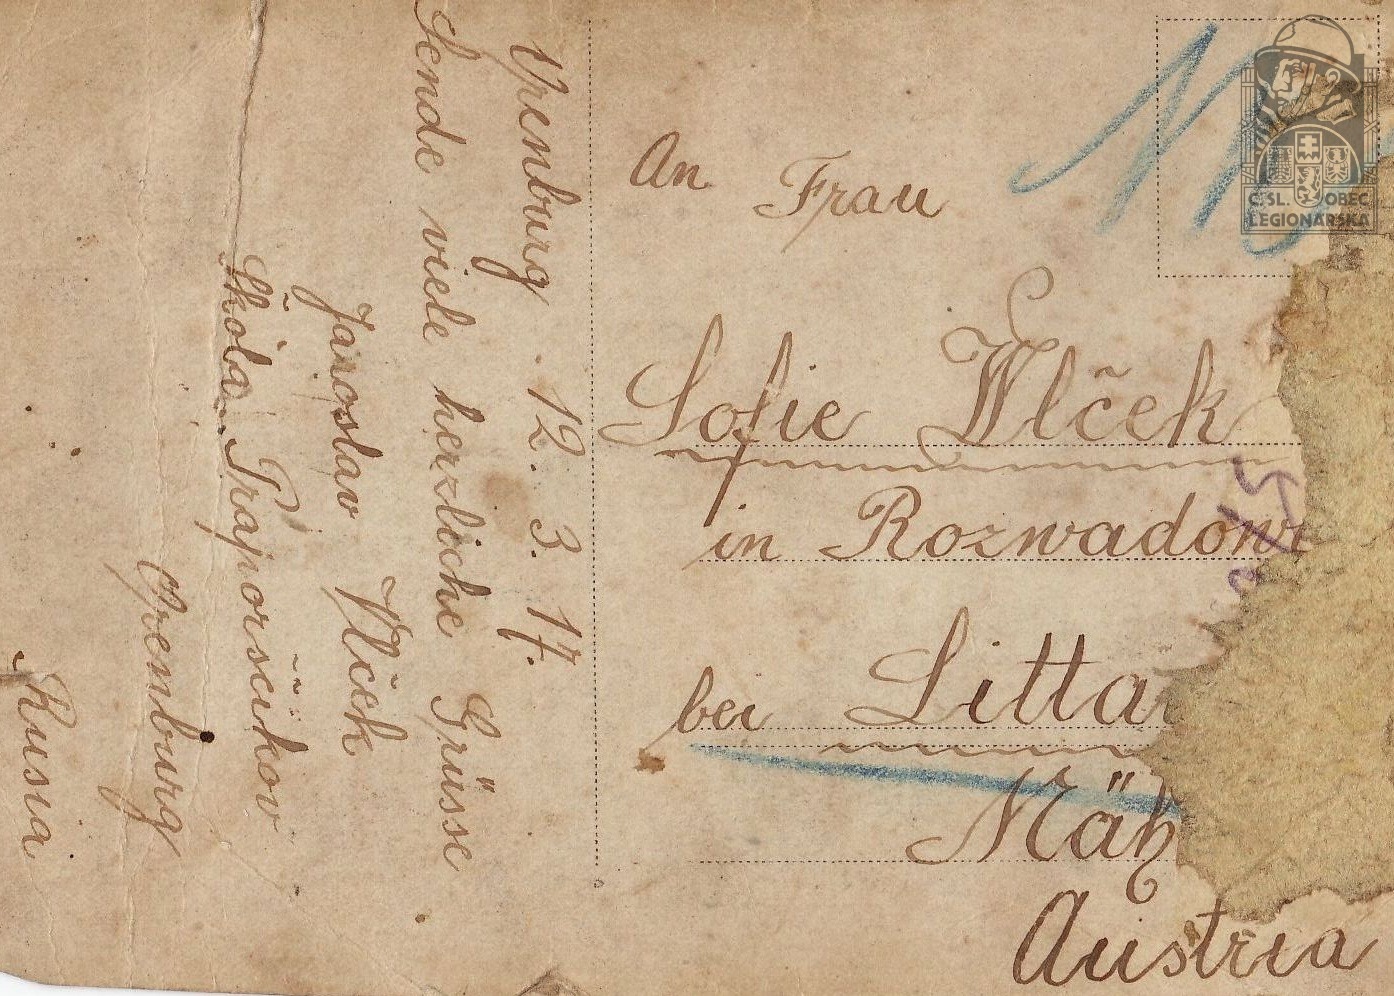 Orenburg 12. 3. 17.
Sende viele herzliche Grüsse
Jaroslav Vlček
Škola Praporščikov
Orenburg
Rusia
An Frau
Sofie Vlček
in Rozwadow
bei Litta
Mäh
Austria
Č.SL. OBEC
LEGIONÁŘSKÁ